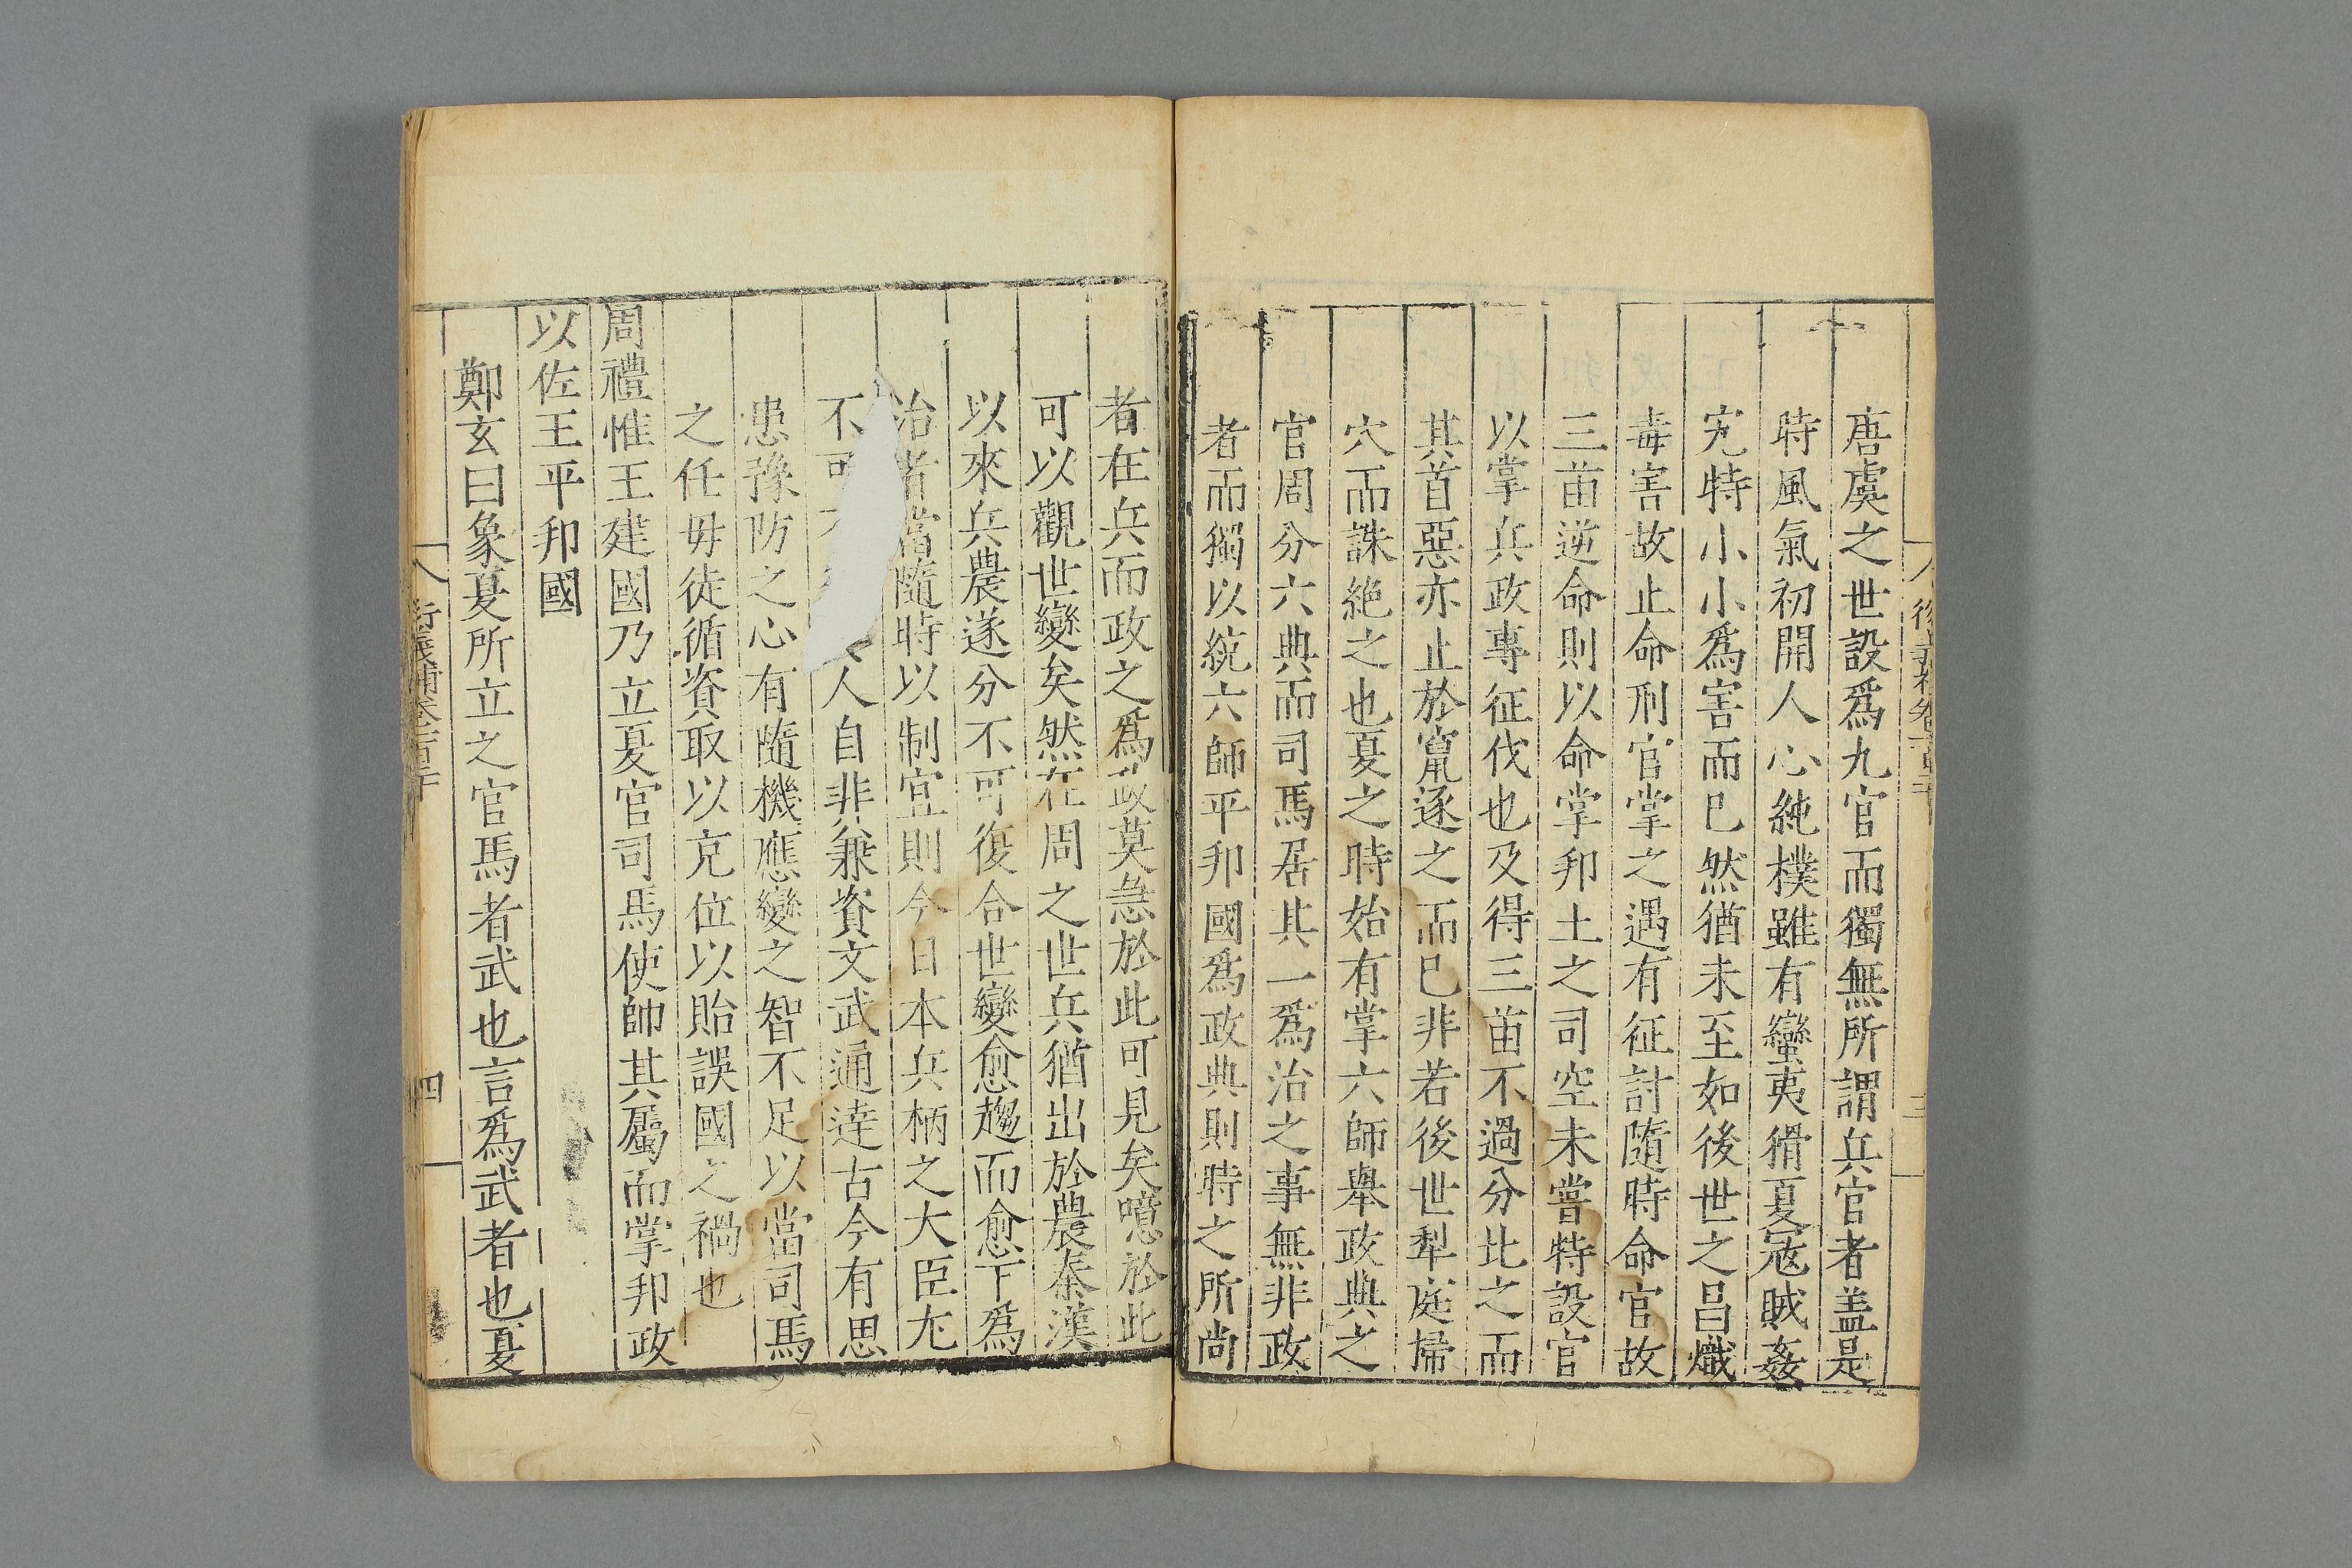 唐虞之世設爲九官而獨無所謂兵官者盖是
時風氣初開人心純樸雖有蠻夷猾夏寇賊姦
宄特小小爲害而已然猶未至如後世之昌熾
毒害故止命刑官掌之遇有征討隨時命官故
三苗逆命則以命掌邦土之司空未嘗特設官
以掌兵政專征伐也及得三苗不過分比之而
其首惡亦止於竄逐之而已非若後世犁庭掃
穴而誅絶之也夏之時始有掌六師舉政典之
官周分六典而司馬居其一爲治之事無非政
者而獨以統六師平邦國爲政典則時之所尚
者在兵而政之爲政莫急於此可見矣噫於此
可以觀世變矣然在周之世兵猶出於農秦漢
以來兵農遂分不可復合世變愈趨而愈下爲
治者當隨時以制宜則今日本兵柄之大臣尤
不可人自非兼資文武通達古今有思
患豫防之心有隨機應變之智不足以當司馬
之任毋徒循資取以充位以貽誤國之禍也
周禮惟王建國乃立夏官司馬使帥其屬而掌邦政
以佐王平邦國
鄭玄曰象夏所立之官馬者武也言爲武者也夏
衍義補卷一百二十
四